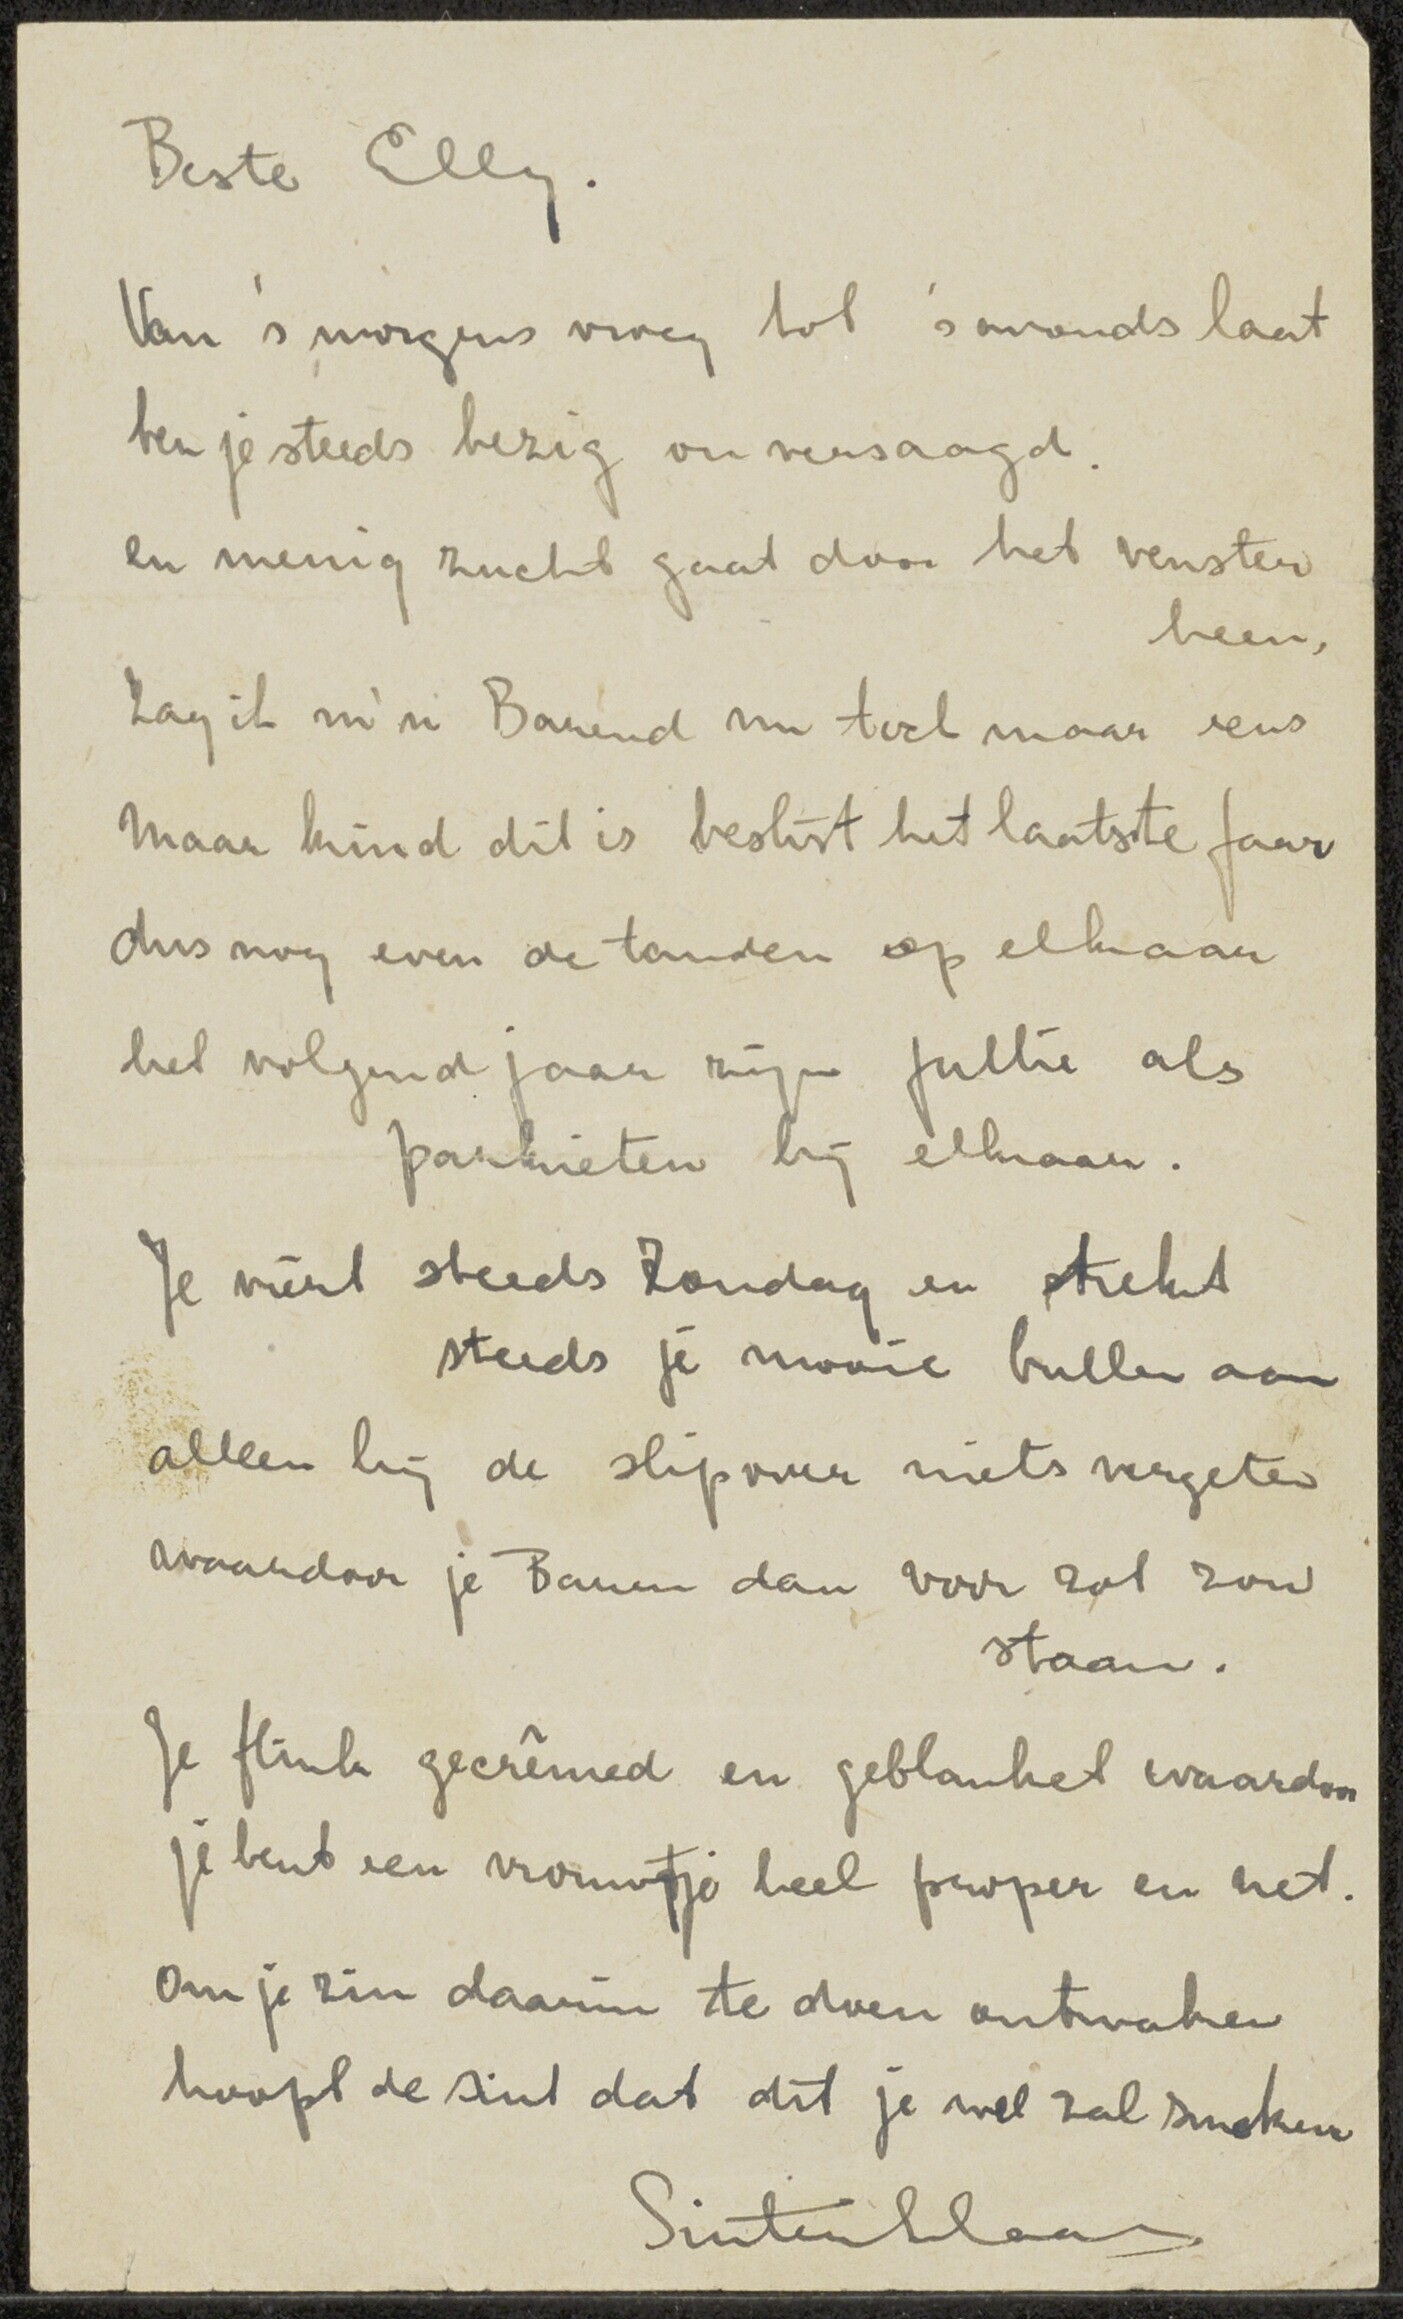 Beste Elly.
Van 's morgens vroeg tot 's avonds laat
ben je steeds bezig onversaagd.
en menig zucht gaat door het venster
heen,
Zag ik m'n Barend nu toch maar eens
Maar kind dit is beslist het laatste Jaar
dus nog even de tanden op elkaar
het volgend jaar zijn jullie als
parkieten bij elkaar.
Je viert steeds Zondag en trekt
steeds je mooie bullen aan
alleen bij de slipover niets vergeten
waardoor je Baren dan voor zot zou
staan.
Je flink gecrêmed en geblanket waardoor
je bent een vrouwtje heel proper en net.
Om je zin daarin te doen ontwaken
hoopt de Sint dat dit je wel zal smaken
Sintenklaas